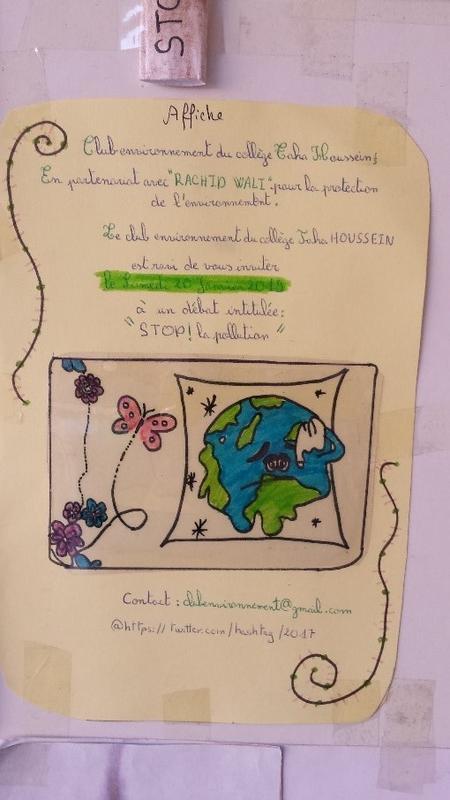 STO
Affiche
Club environnement du collège Taha Houssein
En partenariat avec "RACHID WALI" pour la protection
de l'environnement.
Le club environnement du collège Taha HOUSSEIN
est ravi de vous inviter
le Samedi 20 Janvier 2018
à un débat intitulée:
"STOP! la pollution"
Contact : clubenvironnement@gmail.com
@https://twitter.com/hashtag/2017